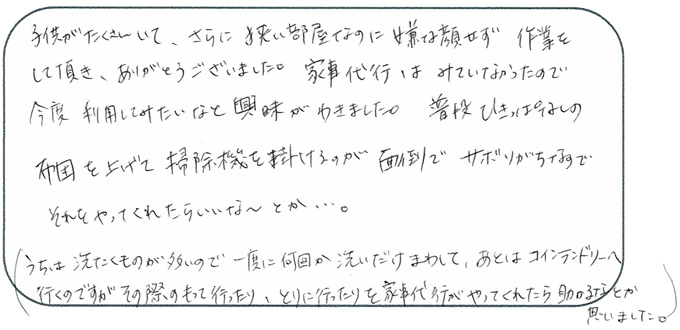 子供がたくさんいて、さらに狭い部屋なのに嫌な顔せず 作業を
して頂き、ありがとうございました。家事代行はみていなかったので
今度 利用してみたいなと興味がわきました。普段ひきっぱなしの
布団を上げて掃除機を掛けるのが 面倒でサボりがちなので
それをやってくれたらいいな〜とか…。
(うちは洗たくものが多いので一度に何回か洗いだけまわして、あとはコインランドリーへ
行くのですがその際のもって行ったり、とりに行ったりを家事代行がやってくれたら助かるなとか
思いました。)